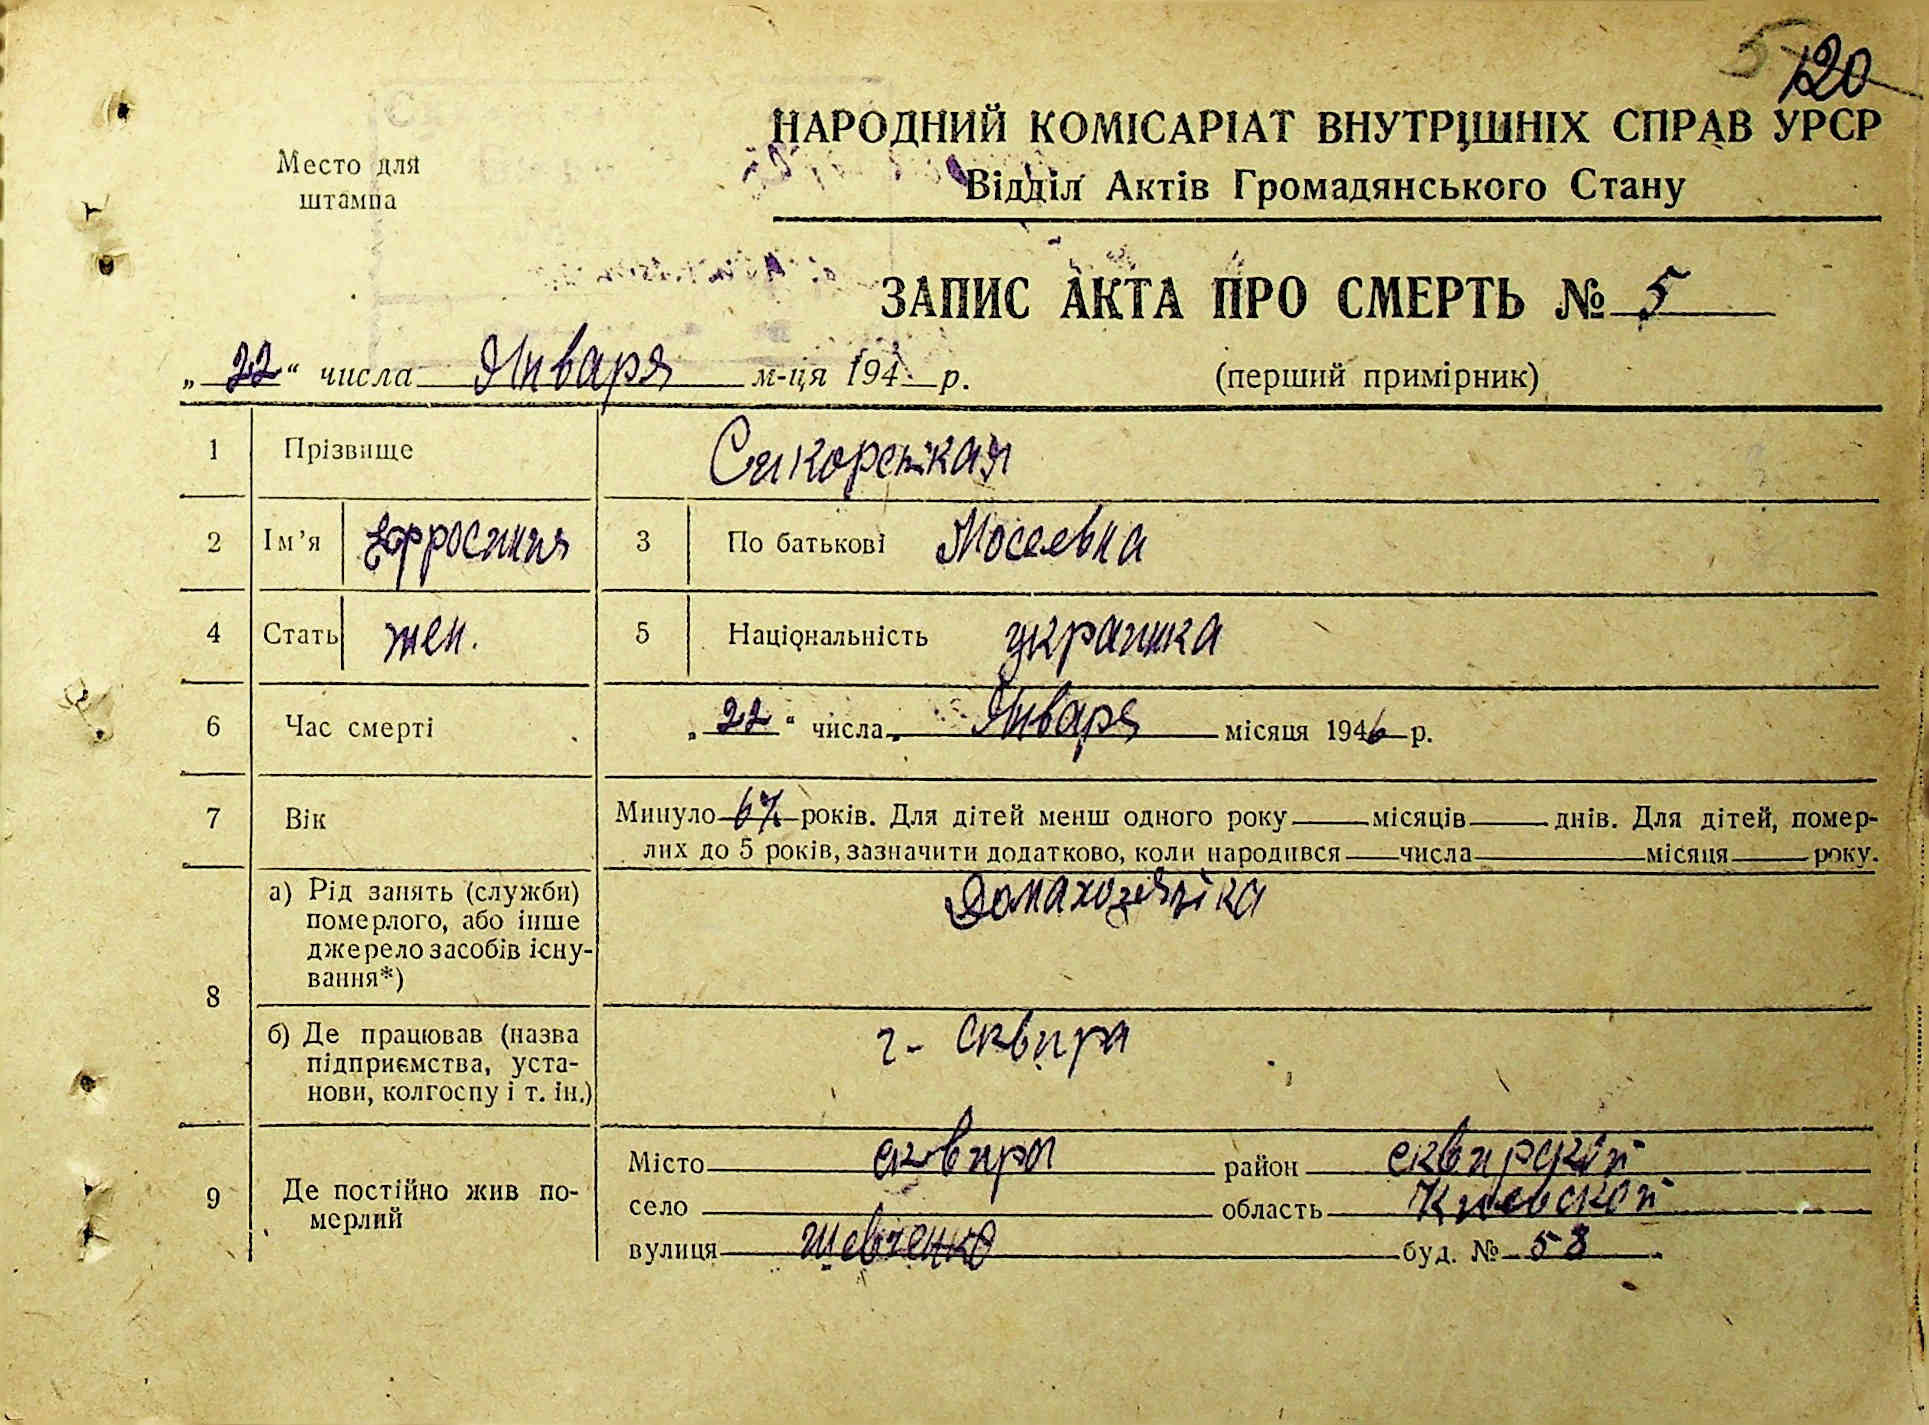 5 120
НАРОДНИЙ КОМІСАРІАТ ВНУТРІШНІХ СПРАВ УРСР
Место для
штампа
Відділ Актів Громадянського Стану
ЗАПИС АКТА ПРО СМЕРТЬ № 5
„22“ числа Января м-ця 194 р. (перший примірник)
1 Прізвище Сикорская
2 Ім’я Ефросиния 3 По батькові Моселевна
4 Стать жен. 5 Національність украинка
6 Час смерті „22“ числа Января місяця 1946 р.
7 Вік Минуло 67 років. Для дітей менш одного року місяців днів. Для дітей, помер-
лих до 5 років, зазначити додатково, коли народився числа місяця року.
8 а) Рід занять (служби)
померлого, або інше
джерело засобів існу-
вання*)
Домахозяйка
б) Де працював (назва
підприємства, уста-
нови, колгоспу і т. ін.)
г- Сквира
9 Де постійно жив по-
мерлий
Місто сквира район сквирский
село область Киевской
вулиця Шевченко буд. № 58